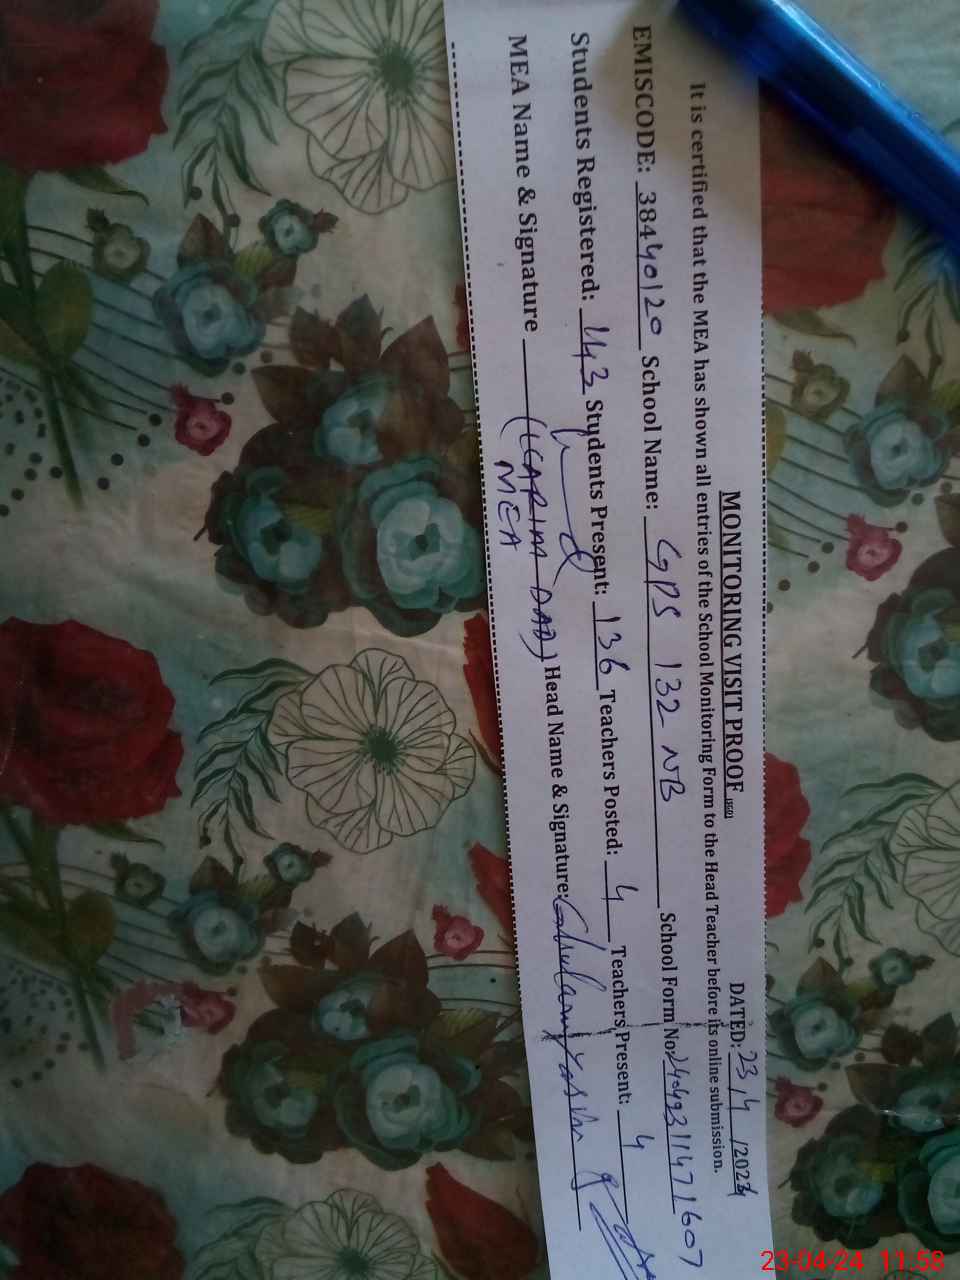 MONITORING VISIT PROOF
DATED: 23/4/2024
It is certified that the MEA has shown all entries of the School Monitoring Form to the Head Teacher before its online submission.
EMISCODE: 38440120 School Name: GPS 132 NB School Form No:
Students Registered: 143 Students Present: 136 Teachers Posted: 4 Teachers Present: 4
MEA Name & Signature (KARIM DAD) Head Name & Signature: Ghulam Yasin
MEA
23-04-24 11:58